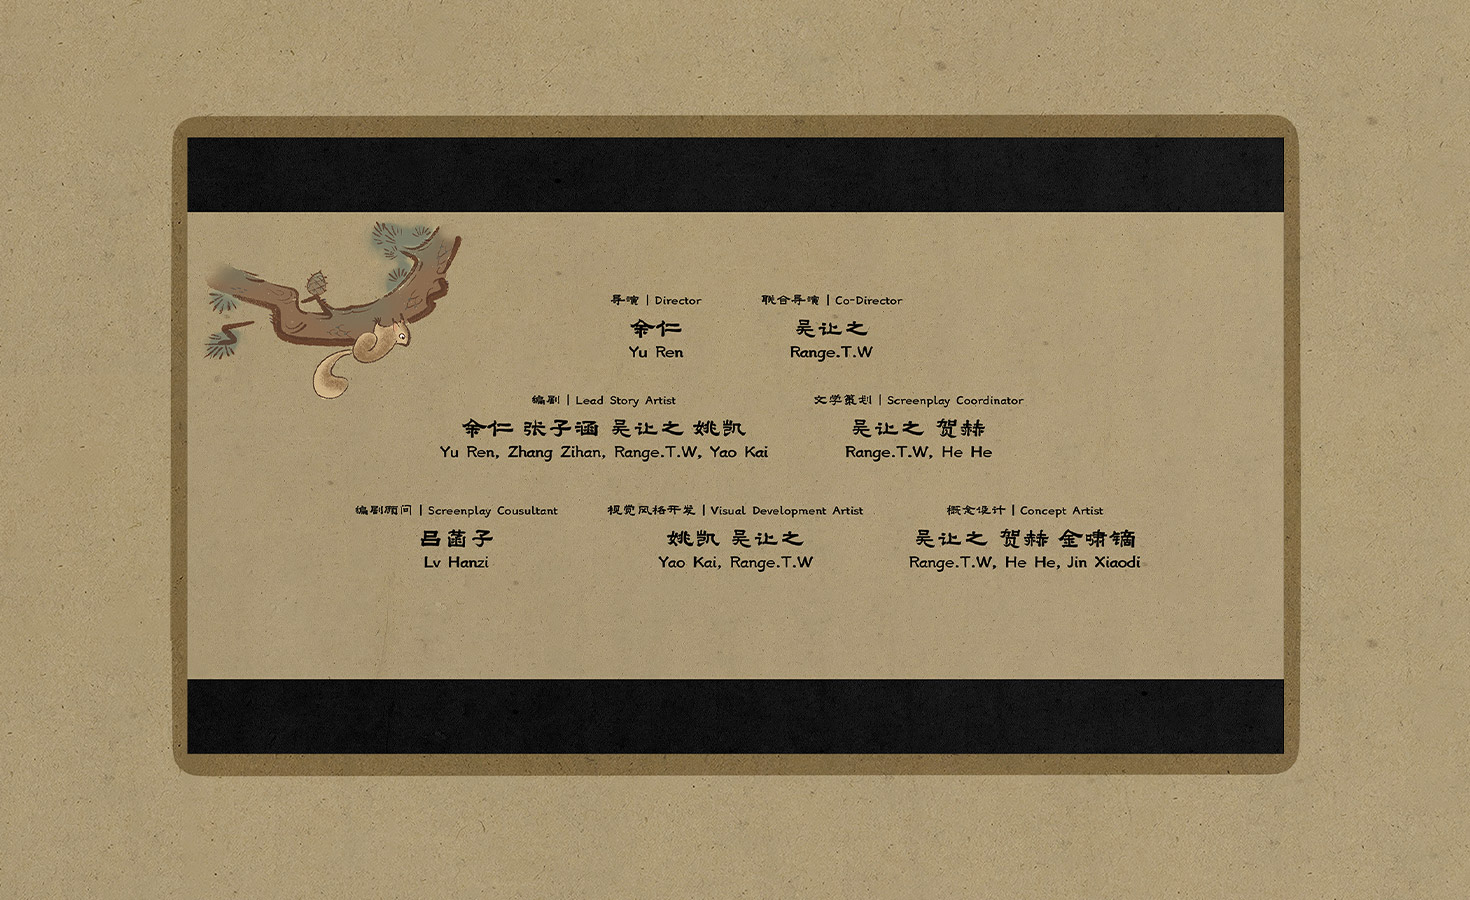 导演 | Director
余仁
Yu Ren
联合导演 | Co-Director
吴让之
Range.T.W
编剧 | Lead Story Artist
余仁 张子涵 吴让之 姚凯
Yu Ren, Zhang Zihan, Range.T.W, Yao Kai
文学策划 | Screenplay Coordinator
吴让之 贺赫
Range.T.W, He He
编剧顾问 | Screenplay Cousultant
吕菡子
Lv Hanzi
视觉风格开发 | Visual Development Artist
姚凯 吴让之
Yao Kai, Range.T.W
概念设计 | Concept Artist
吴让之 贺赫 金啸镝
Range.T.W, He He, Jin Xiaodi